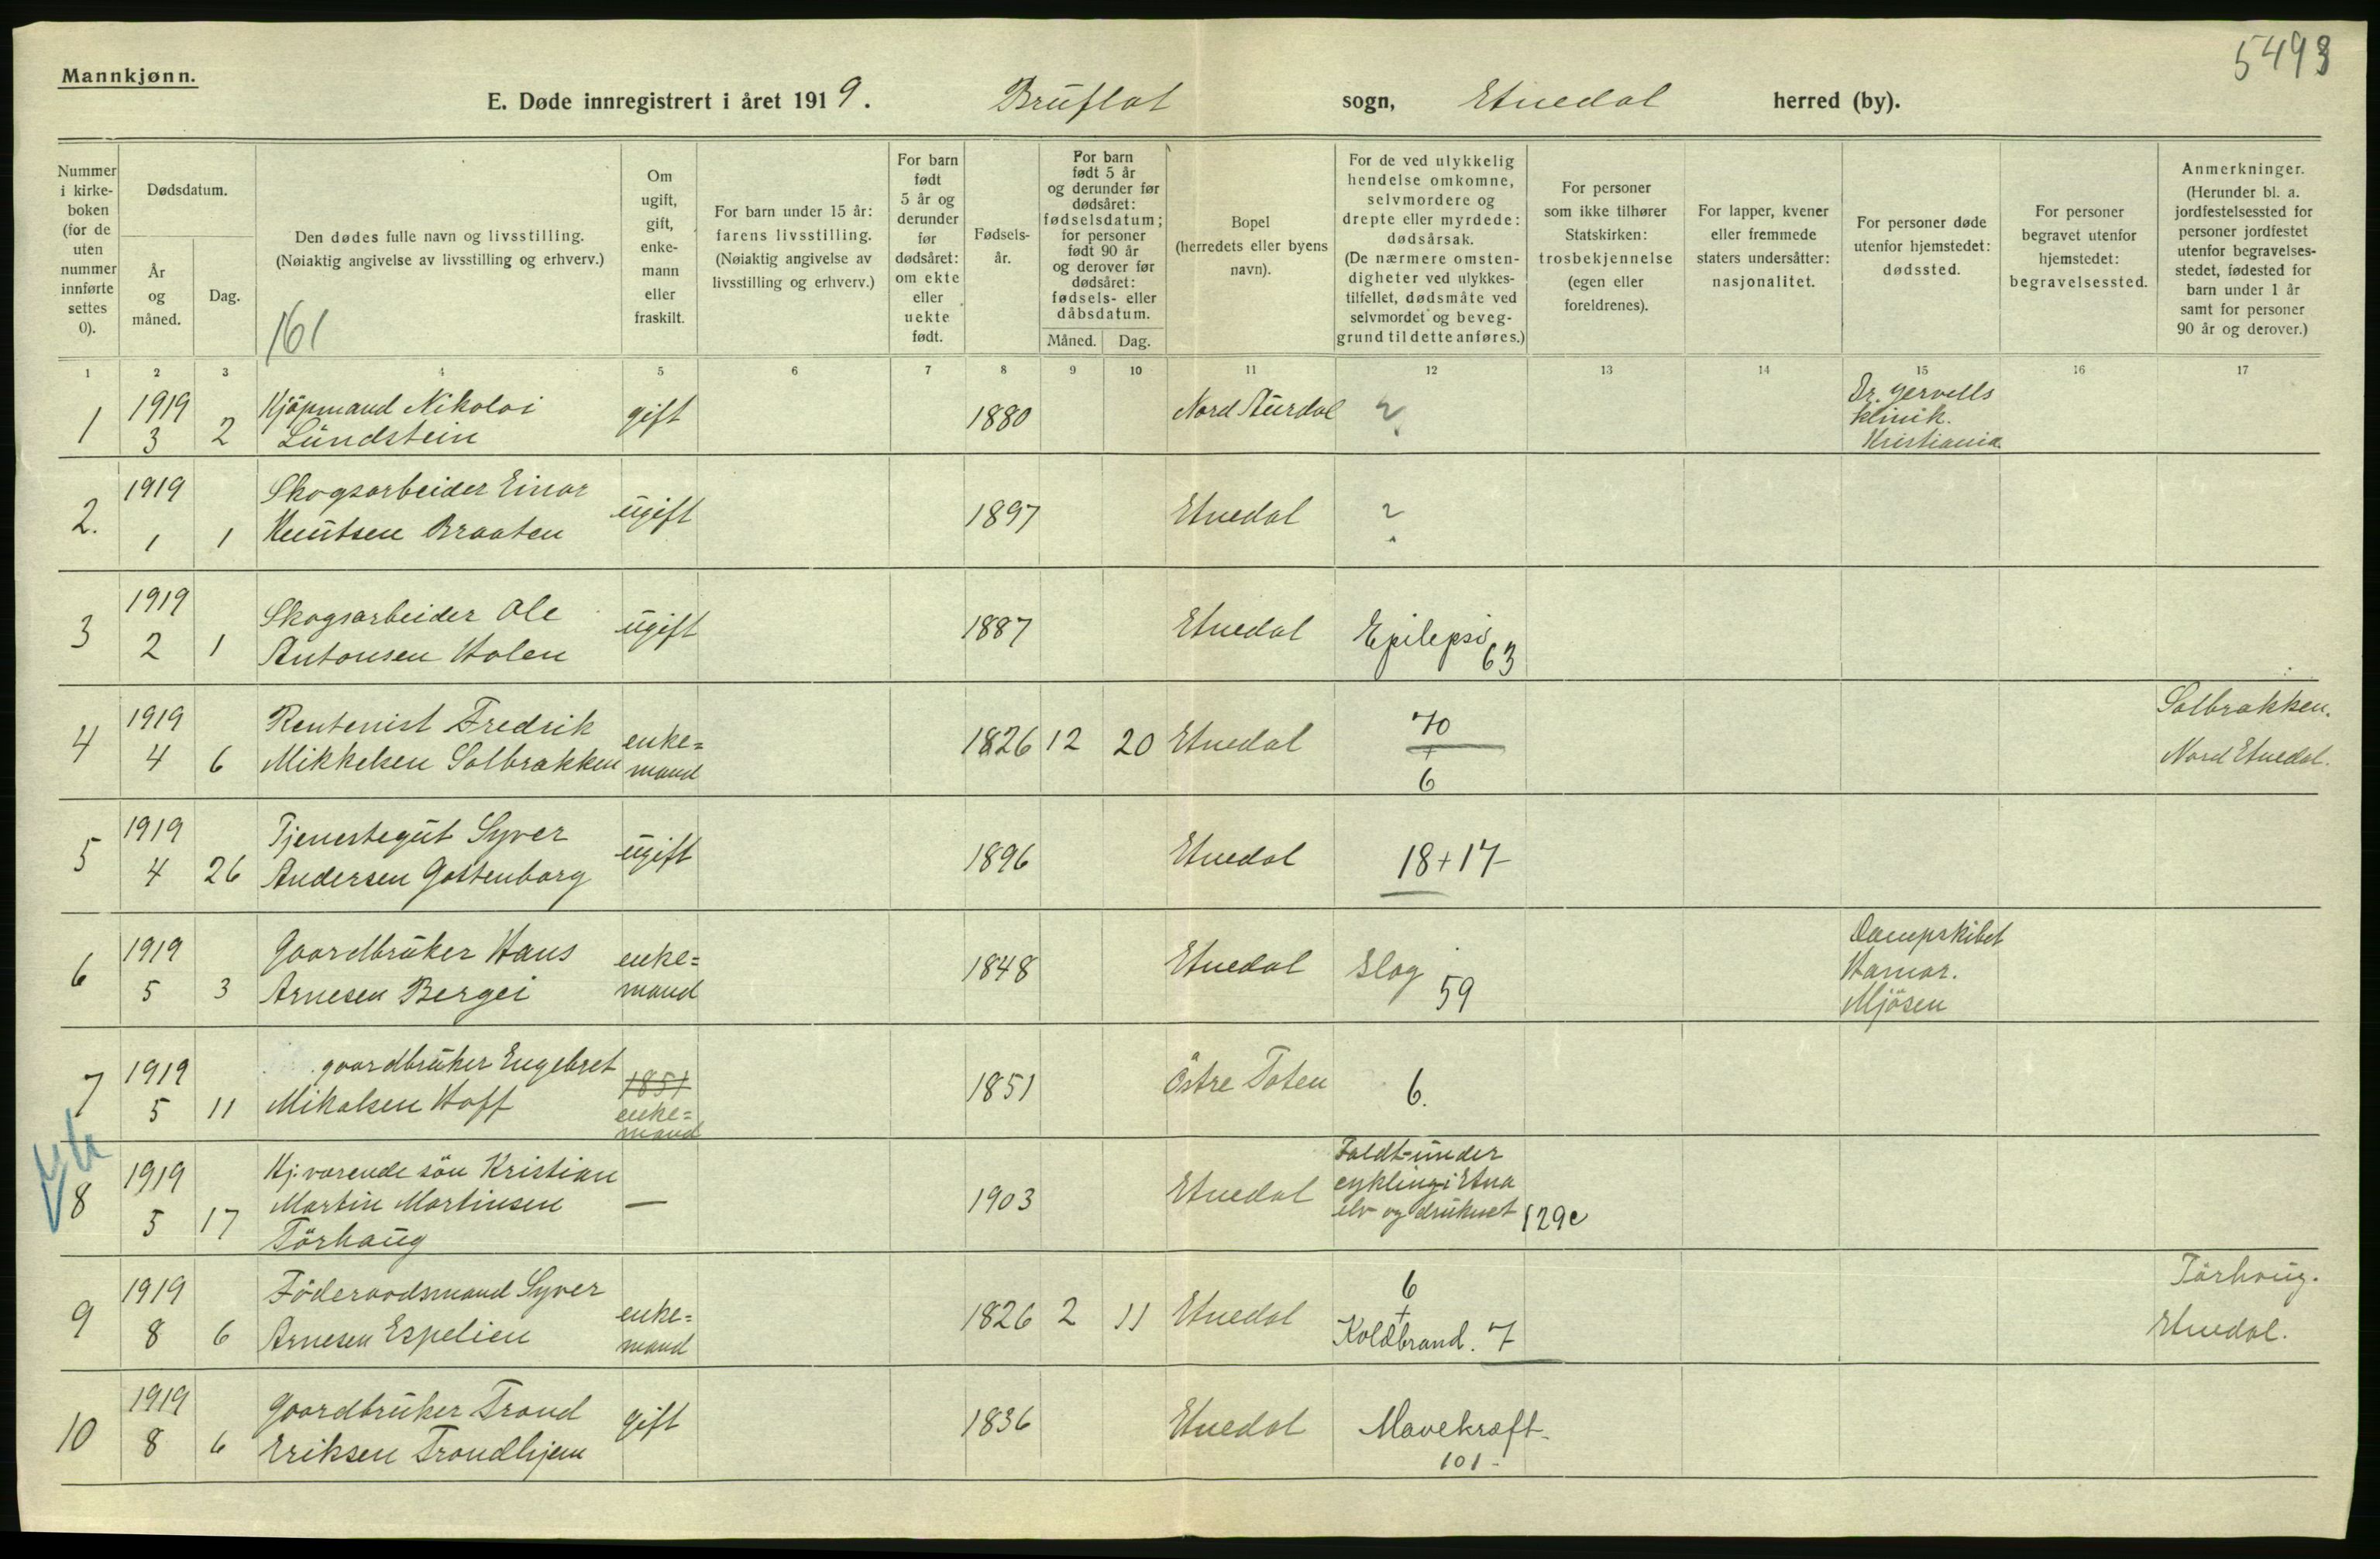 5493
Mannkjønn.
E. Døde innregistrert i året 1919. Bruflat sogn, Etnedal herred (by).
Nummer i kirke-boken (for de uten nummer innførte settes 0).
Dødsdatum.
År og måned.
Dag.
Den dødes fulle navn og livsstilling.
(Nøiaktig angivelse av livsstilling og erhverv.)
161
Om ugift, gift, enke-mann eller fraskilt.
For barn under 15 år: farens livsstilling. (Nøiaktig angivelse av livsstilling og erhverv.)
For barn født 5 år og derunder før dødsåret: om ekte eller uekte født.
Fødsels-år.
For barn født 5 år og derunder før dødsåret: fødselsdatum; for personer født 90 år og derover før dødsåret: fødsels- eller dåbsdatum.
Måned. Dag.
Bopel (herredets eller byens navn).
For de ved ulykkelig hendelse omkomne, selvmordere og drepte eller myrdede: dødsårsak. (De nærmere omsten-digheter ved ulykkes-tilfellet, dødsmåte ved selvmordet og beveg-grund til dette anføres.)
For personer som ikke tilhører Statskirken: trosbekjennelse (egen eller foreldrenes).
For lapper, kvener eller fremmede staters undersåtter: nasjonalitet.
For personer døde utenfor hjemstedet: dødssted.
For personer begravet utenfor hjemstedet: begravelsessted.
Anmerkninger. (Herunder bl. a. jordfestelsessted for personer jordfestet utenfor begravelses-stedet, fødested for barn under 1 år samt for personer 90 år og derover.)
1 2 3 4 5 6 7 8 9 10 11 12 13 14 15 16 17
1 1919 3 2 Kjöpmand Nikolai Lundstein gift 1880 Nord Aurdal ? Dr. Gervells klinik. Kristiania
2. 1919 1 1 Skogsarbeider Einar Knutsen Braaten ugift 1897 Etnedal ?
3 1919 2 1 Skogsarbeider Ole Antonsen Holen ugift 1887 Etnedal Epilepsi 63
4 1919 4 6 Rentenist Fredrik Mikkelsen Solbrækken enke=mand 1826 12 20 Etnedal 70 + 6 Solbrækken. Nord Etnedal.
5 1919 4 26 Tjenestegut Syver Andersen Goltenborg ugift 1896 Etnedal 18+17
6 1919 5 3 Gaardbruker Hans Arnesen Bergei enke=mand 1848 Etnedal Slag 59 Dampskibet Hamar. Mjösen
7 1919 5 11 gaardbruker Engebret Mikalsen Hoff 1851 enke=mand 1851 Östre Toten 6.
8 1919 5 17 Hj.værende sön Kristian Martin Martinsen Törhaug — 1903 Etnedal Faldt under cykling i Etna elv og druknet 129c
9 1919 8 6 Föderaadsmand Syver Arnesen Espelien enke=mand 1826 2 11 Etnedal 6 + Koldbrand. 7 Törhaug. Etnedal.
10 1919 8 6 Gaardbruker Trond Eriksen Trondhjem gift 1836 Etnedal Mavekræft 101